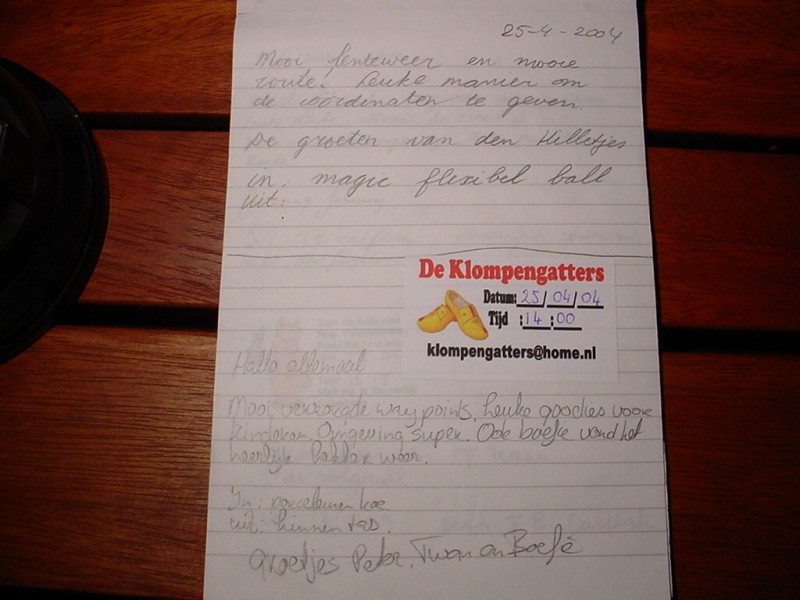 25-4-2004
Mooi lenteweer en mooie
route. Leuke manier om
de coördinaten te geven.
De groeten van den Hilletjes
in: magic flexibel ball
Uit:
De Klompengatters
Datum: 25/04/04
Tijd :14:00
klompengatters@home.nl
Hallo allemaal
Mooi verzorgde waypoints. Leuke goodies voor
kinderen. Omgeving super. Ook boefie vond het
heerlijk. lekker weer.
In: porceleinen koe
uit: kinnen
Groetjes Peter, Twan en Boefie